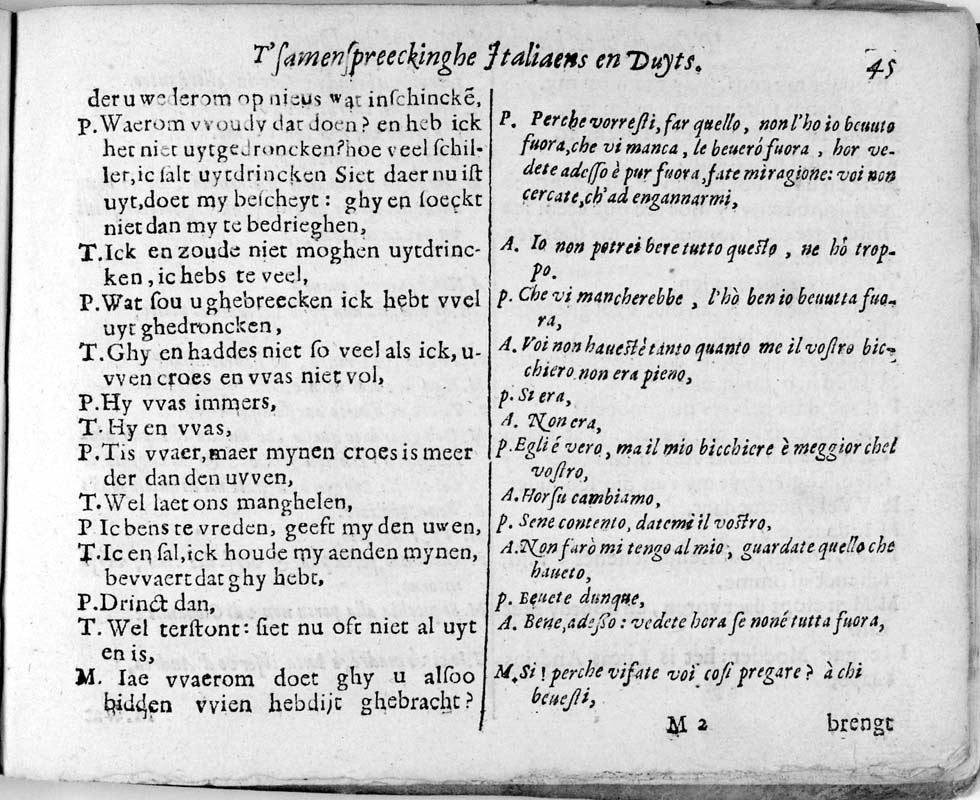 T'samenspreeckinghe Italiaens en Duyts.
45
der u wederom op nieus wat inschinckē,
P. Waerom vvoudy dat doen? en heb ick
het niet uytgedroncken? hoe veel schil-
ler, ic salt uytdrincken Siet daer nu ist
uyt, doet my bescheyt: ghy en soeckt
niet dan my te bedrieghen,
T. Ick en zoude niet moghen uytdrinc-
ken, ic hebs te veel,
P. Wat sou u ghebreecken ick hebt vvel
uyt ghedroncken,
T. Ghy en haddes niet so veel als ick, u-
vven croes en vvas niet vol,
P. Hy vvas immers,
T. Hy en vvas,
P. Tis vvaer, maer mynen croes is meer
der dan den uvven,
T. Wel laet ons manghelen,
P Ic bens te vreden, geeft my den uwen,
T. Ic en sal, ick houde my aenden mynen,
bevvaert dat ghy hebt,
P. Drinct dan,
T. Wel terstont: siet nu oft niet al uyt
en is,
M. Iae vvaerom doet ghy u alsoo
bidden vvien hebdijt ghebracht?
P. Perche vorresti, far quello, non l'ho io beuuto
fuora, che vi manca, le beueró fuora, hor ve-
dete adesso è pur fuora, fate mi ragione: voi non
cercate, ch'ad engannarmi,
A. Io non potrei bere tutto questo, ne hò trop-
po.
p. Che vi mancherebbe, l'hò ben io beuutta fuo-
ra,
A. Voi non hauestè tanto quanto me il vostro bic-
chiero non era pieno,
p. Si era,
A. Non era,
p. Egli é vero, ma il mio bicchiere è meggior chel
vostro,
A. Horsu cambiamo,
p. Sene contento, datemi il vostro,
A. Non farò mi tengo al mio, guardate quello che
haueto,
p. Beuete dunque,
A. Bene, adesso: vedete hora se noné tutta fuora,
M. Si! perche vi fate voi cosi pregare? à chi
beuesti,
M 2
brengt